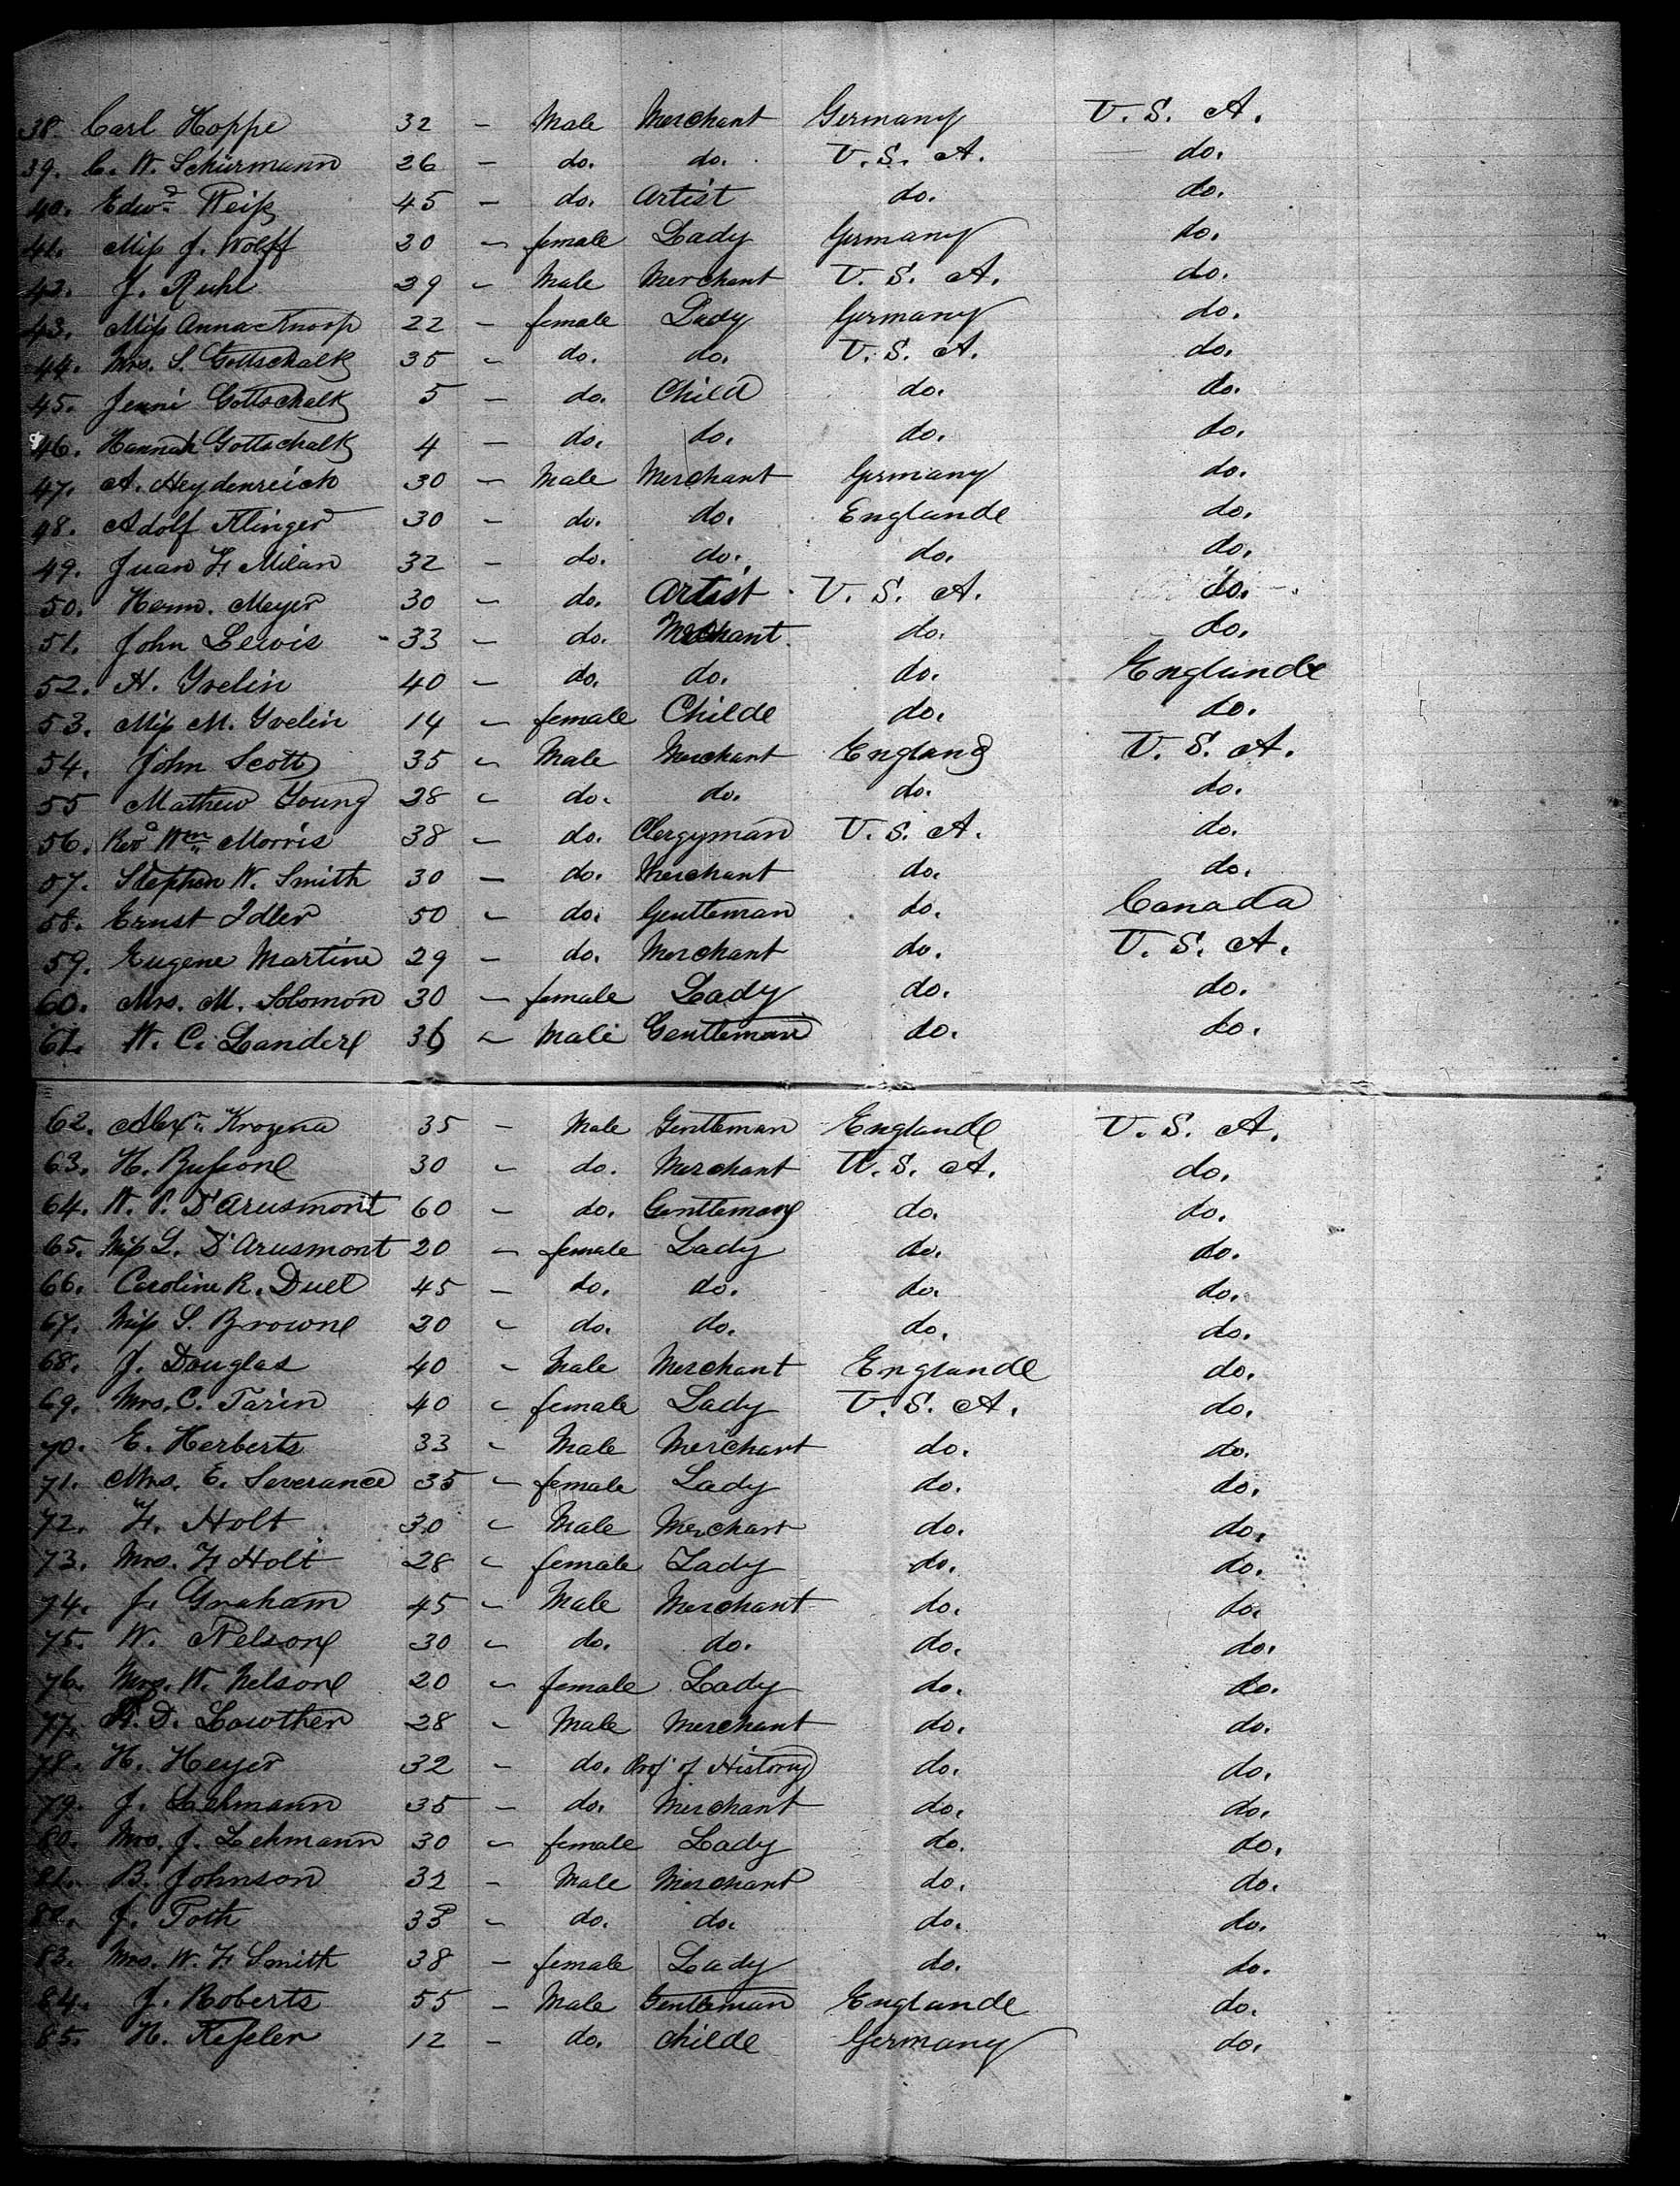 38. Carl Hoppe 32 - Male Merchant Germany U. S. A.
39. C. W. Schürmann 26 - do. do. U. S. A. do.
40. Edwd Reiß 45 - do. Artist do. do.
41. Miß J. Wolff 20 - female Lady Germany do.
42. J. Ruhl 29 - Male Merchant U. S. A. do.
43. Miß Anna Knorp 22 - female Lady Germany do.
44. Mrs. S. Gottschalk 35 - do. do. U. S. A. do.
45. Jenni Gottschalk 5 - do. Child do. do.
46. Hannah Gottschalk 4 - do. do. do. do.
47. A. Heydenreich 30 - Male Merchant Germany do.
48. Adolf Klinger 30 - do. do. Englande do.
49. Juan F. Milan 32 - do. do. do. do.
50. Herm. Meyer 30 - do. Artist U. S. A. do.
51. John Lewis 33 - do. Merchant. do. do.
52. H. Yvelin 40 - do. do. do. Englande
53. Miß M. Yvelin 14 - female Childe do. do.
54. John Scott 35 - Male Merchant England U. S. A.
55 Mathew Young 28 - do. do. do. do.
56. Revd Wm Morris 38 - do. Clergyman U. S. A. do.
57. Stephen W. Smith 30 - do. Merchant do. do.
58. Ernst Idler 50 - do. Gentleman do. Canada
59. Eugene Martine 29 - do. Merchant do. U. S. A.
60. Mrs. M. Solomon 30 - female Lady do. do.
61. W. C. Landere 36 - Male Gentleman do. do.
62. Alexr Krozena 35 - Male Gentleman Englande U. S. A.
63. H. Bußone 30 - do. Merchant U. S. A. do.
64. W. P. D'Arusmont 60 - do. Gentleman do. do.
65. Miß L. D'Arusmont 20 - female Lady do. do.
66. Caroline R. Duel 45 - do. do. do. do.
67. Miß S. Browne 20 - do. do. do. do.
68. J. Douglas 40 - Male Merchant Englande do.
69. Mrs. C. Tarin 40 - female Lady U. S. A. do.
70. E. Herberts 33 - Male Merchant do. do.
71. Mrs. E. Severance 35 - female Lady do. do.
72. F. Holt 30 - Male Merchant do. do.
73. Mrs. F. Holt 28 - female Lady do. do.
74. J. Graham 45 - Male Merchant do. do.
75. W. Nelsone 30 - do. do. do. do.
76. Mrs. W. Nelsone 20 - female Lady do. do.
77. D. Lowther 28 - Male Merchant do. do.
78. H. Heyer 32 - do. Prof of History do. do.
79. J. Lehmann 35 - do. Merchant do. do.
80. Mrs. J. Lehmann 30 - female Lady do. do.
81. B. Johnson 32 - Male Merchant do. do.
82. J. Toth 33 - do. do. do. do.
83. Mrs. W. F. Smith 38 - female Lady do. do.
84. J. Roberts 55 - Male Gentleman Englande do.
85. H. Keßler 12 - do. childe Germany do.